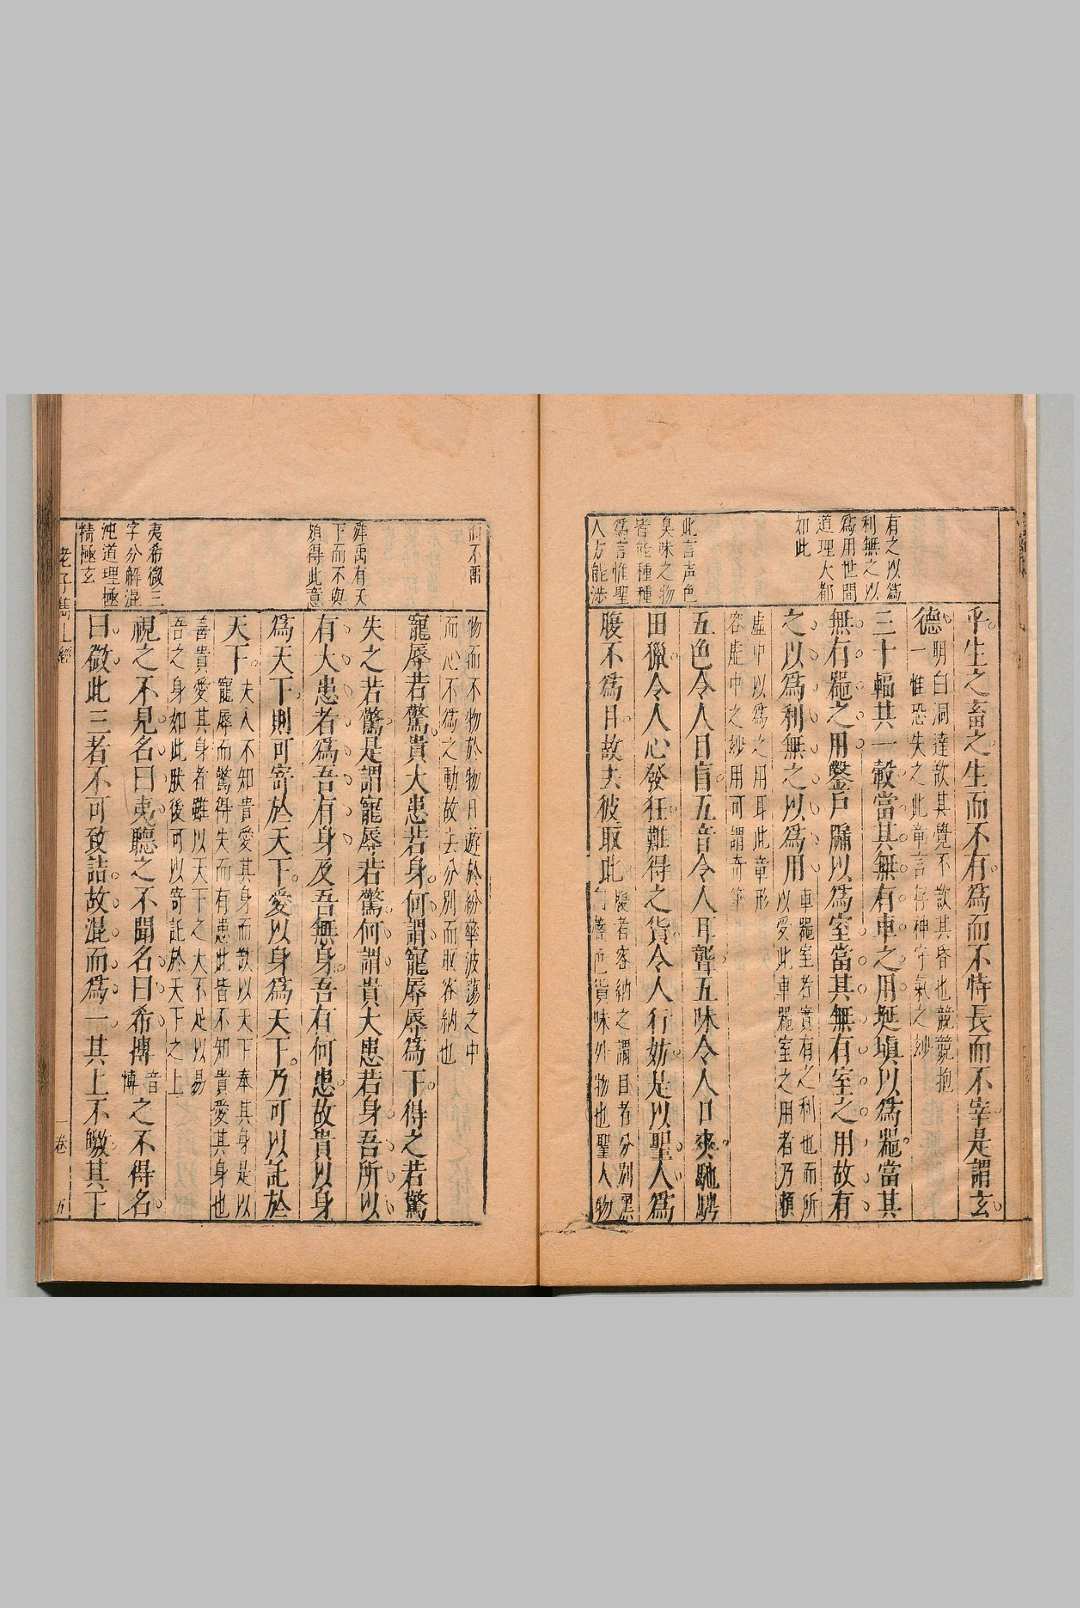 有之以爲
利無之以
爲用世間
道理大都
如此
此言声色
臭味之物
皆能種種
爲言惟聖
人方能涉
乎生之畜之生而不有爲而不恃長而不宰是謂玄
德
明白洞達故其覺不故其昏也兢兢抱
一惟恐失之此章言存神守氣之妙
三十輻其一轂當其無有車之用埏埴以爲器當其
無有器之用鑿戶牖以爲室當其無有室之用故有
之以爲利無之以爲用
車器室若實有之利也而所
以受此車器室之用者乃賴
虛中以爲之用耳此章形
容虛中之妙用可謂奇筆
五色令人目盲五音令人耳聾五味令人口爽馳騁
田獵令人心發狂難得之貨令人行妨是以聖人爲
腹不爲目故去彼取此
腹者容納之謂目者分別
也貨味外物也聖人物
而不需
舜禹有天
下而不與
須得此意
夷希微三
字分解混
沌道理極
精極玄
物而不物於物日遊於紛華波蕩之中
而心不爲之動故去分別而取容納也
寵辱若驚貴大患若身何謂寵辱辱爲下得之若驚
失之若驚是謂寵辱若驚何謂貴大患若身吾所以
有大患者爲吾有身及吾無身吾有何患故貴以身
爲天下則可寄於天下愛以身爲天下乃可以託於
天下
夫人不知貴愛其身而欲以天下奉其身是以
寵辱而驚得失而有患此皆不知貴愛其身也
善貴愛其身者雖以天下之大不足以易
吾之身如此肰後可以寄託於天下之上
視之不見名曰夷聽之不聞名曰希摶
音
博
之不得名
曰微此三者不可致詰故混而爲一其上不皦其下
老子雋上經
一卷
五